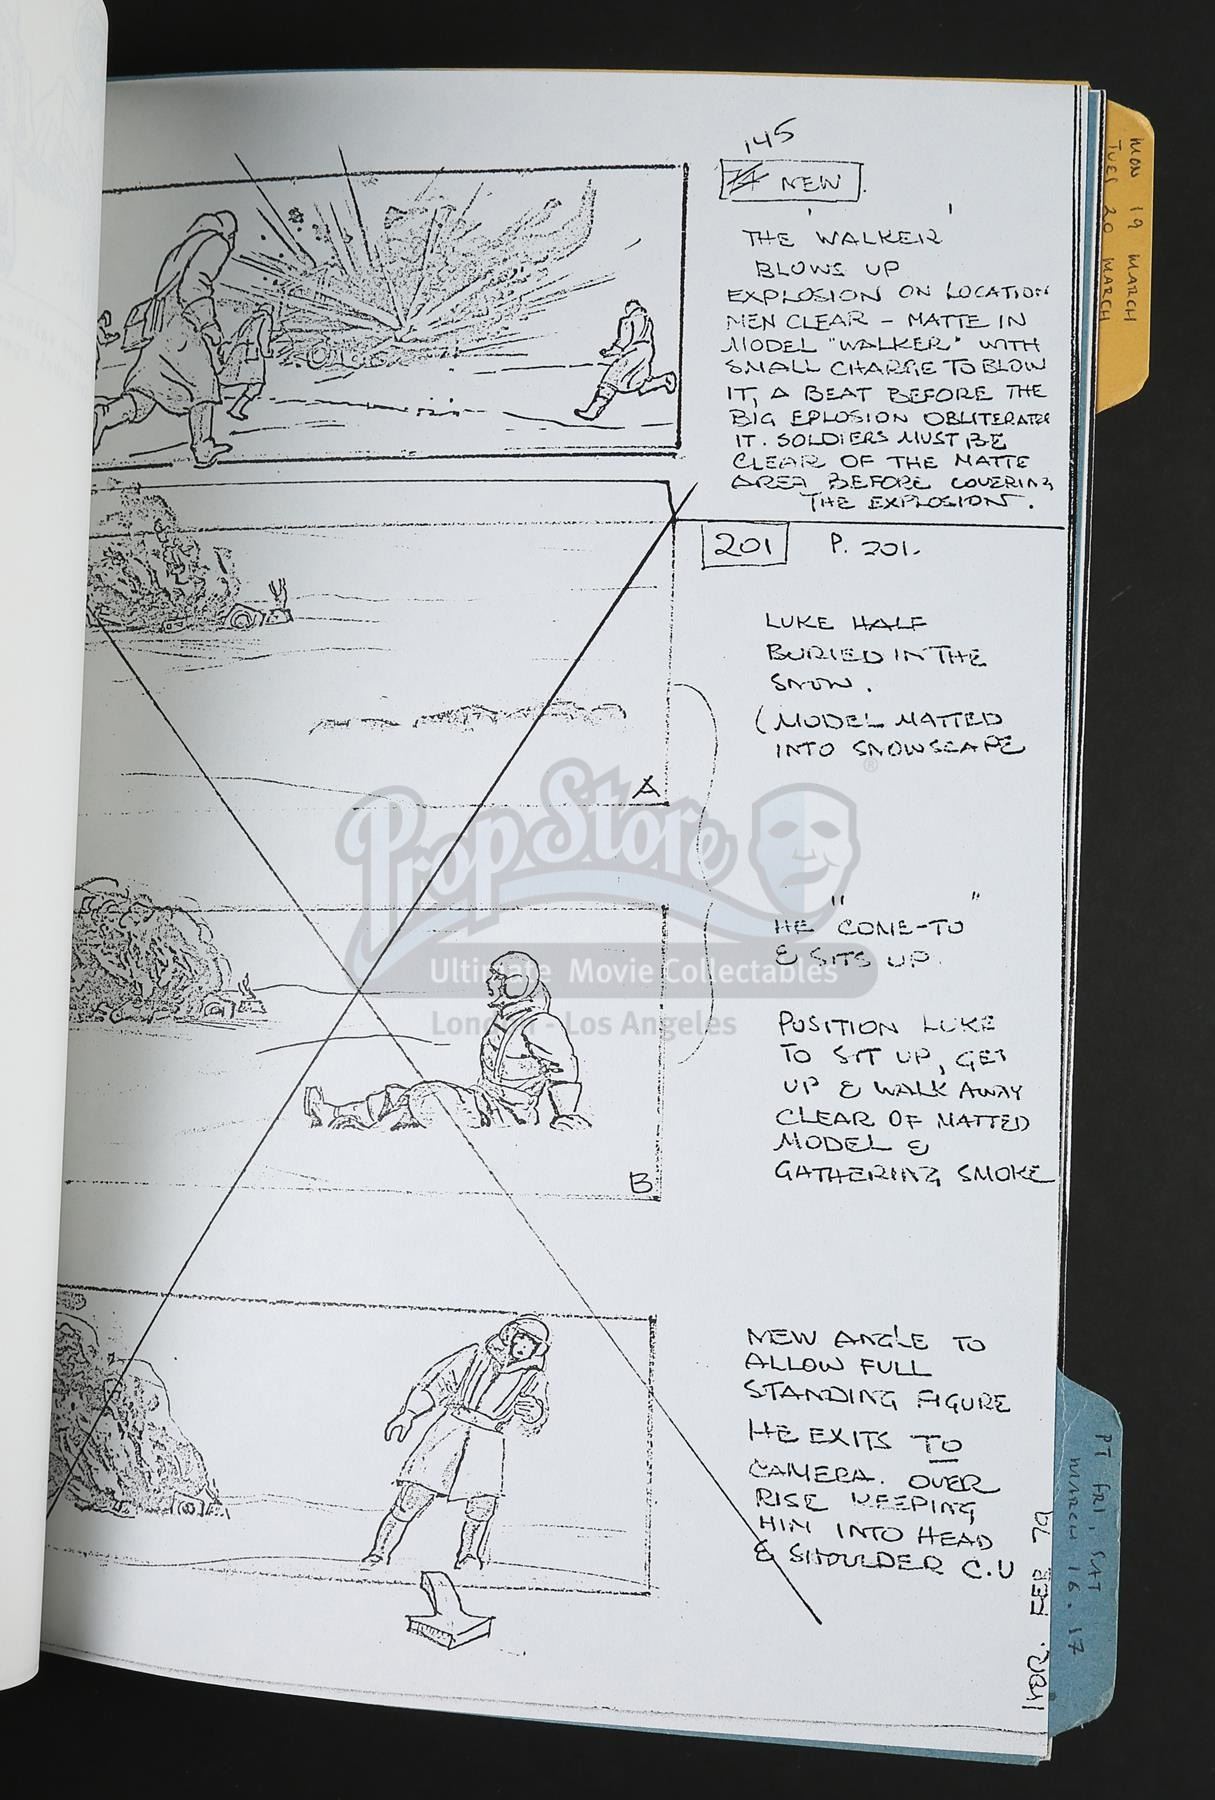 145
NEW
THE WALKER
BLOWS UP
EXPLOSION ON LOCATION
MEN CLEAR - MATTE IN
MODEL "WALKER" WITH
SMALL CHARGE TO BLOW
IT, A BEAT BEFORE THE
BIG EPLOSION OBLITERATES
IT. SOLDIERS MUST BE
CLEAR OF THE MATTE
AREA BEFORE COVERING
THE EXPLOSION.
201 P. 201.
LUKE HALF
BURIED IN THE
SNOW.
(MODEL MATTED
INTO SNOWSCAPE
A
HE "COME-TO"
& SITS UP.
POSITION LUKE
TO SIT UP, GET
UP & WALK AWAY
CLEAR OF MATTED
MODEL &
GATHERING SMOKE
B
NEW ANGLE TO
ALLOW FULL
STANDING FIGURE
HE EXITS TO
CAMERA. OVER
RISE KEEPING
HIM INTO HEAD
& SHOULDER C.U
FEB 79
MON 19 MARCH
TUES 20 MARCH
PT FRI, SAT
MARCH 16. 17
PropStore
®
Ultimate Movie Collectables
London - Los Angeles